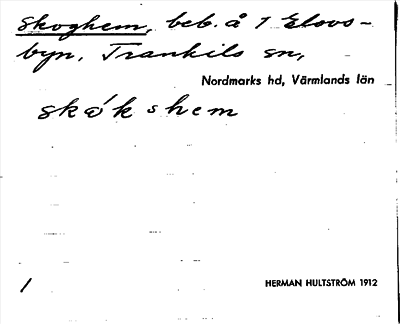 Skoghem, beb. å 1 Elovs-
byn, Trankils sn,
Nordmarks hd, Värmlands län
skókshem
1 HERMAN HULTSTRÖM 1912